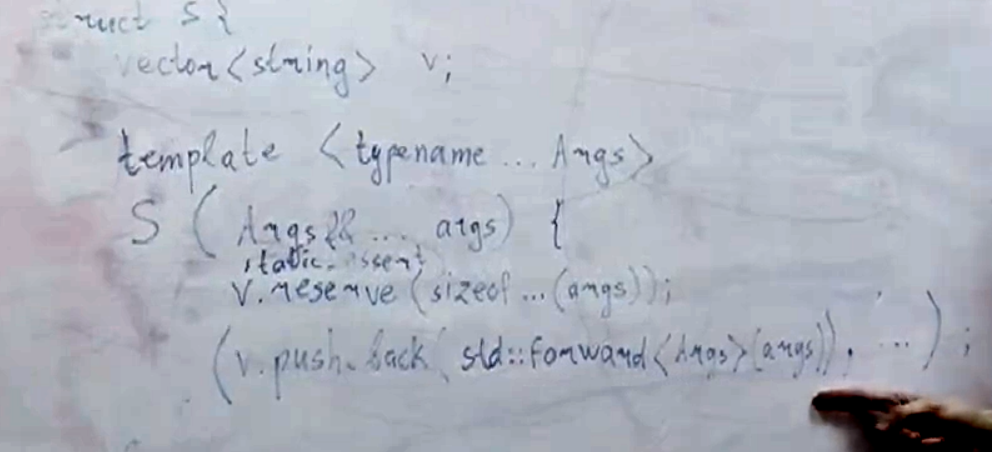 struct S {
vector<string> v;
template <typename ... Args>
S ( Args&& ... args) {
static_assert
v.reserve (sizeof ... (args));
(v.push_back( std::forward<Args>(args)), ... ) ;